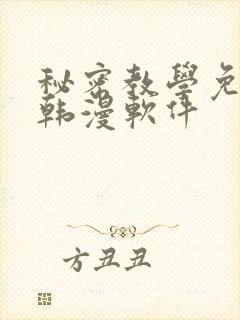 秘密教學免
韩漫軟件
方丑丑